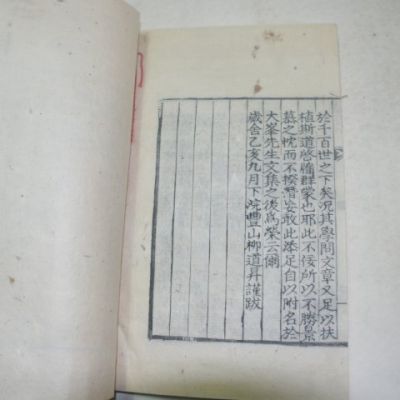 於千百世之下矣況其學問文章又足以扶
植斯道啓牖群蒙也耶此不佞所以不勝景
慕之忱而不揆僭妄敢此添足自以附名於
大峯先生文集之後爲榮云爾
歲舍乙亥九月下浣豊山柳道昇謹跋